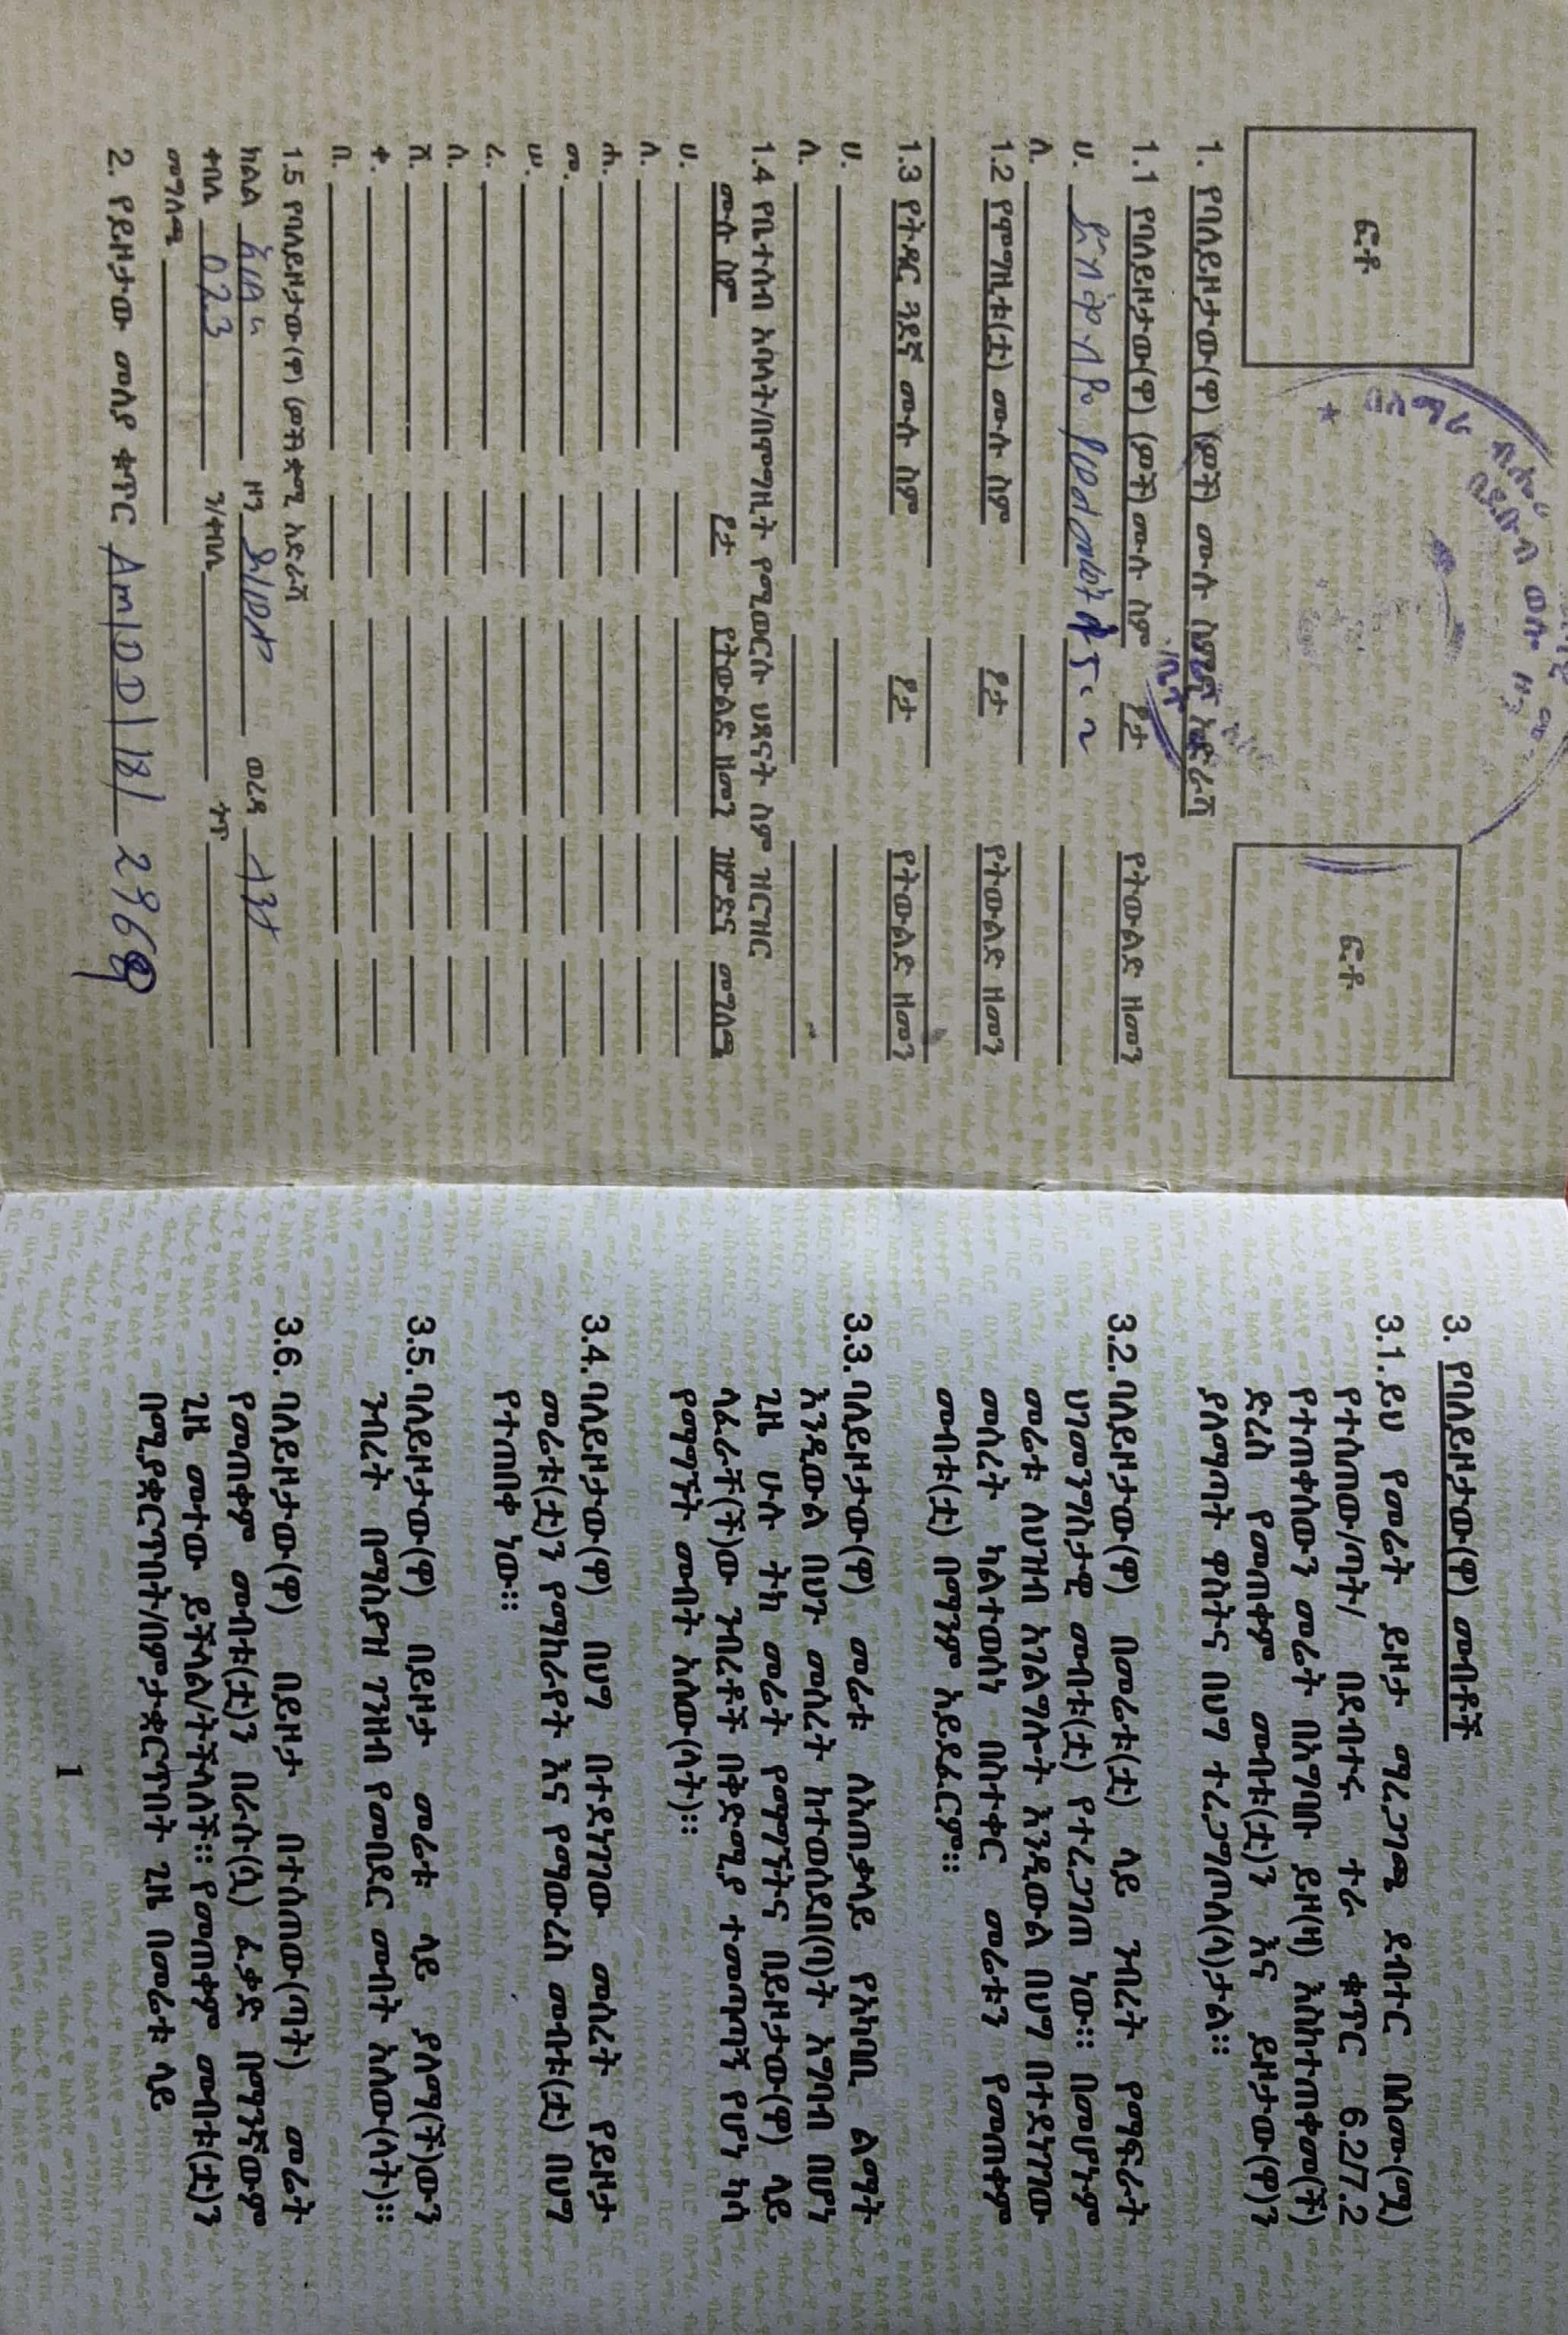 ፎቶ
ፎቶ
1. የባለይዞታው(ዋ) (ዎች) ሙሉ ስምና አድራሻ
1.1 የባለይዞታው(ዋ) (ዎች) ሙሉ ስም ፆታ የትውልድ ዘመን
ሀ.
ለ.
1.2 የሞግዚቱ(ቷ) ሙሉ ስም ፆታ የትውልድ ዘመን
1.3 የትዳር ጓደኛ ሙሉ ስም ፆታ የትውልድ ዘመን
ሀ.
ለ.
1.4 የቤተሰብ አባላት/በሞግዚት የሚወርሱ ህጻናት ስም ዝርዝር
ሙሉ ስም ፆታ የትውልድ ዘመን ዝምድና መግለጫ
ሀ.
ለ.
ሐ.
መ.
ሠ.
ረ.
ሰ.
ሸ.
ቀ.
በ.
1.5 የባለይዞታው(ዋ) (ዎች) ቋሚ አድራሻ
ክልል አማራ ዞን ወረዳ
ቀበሌ 023 ን/ቀበሌ ጎጥ
መግለጫ
2. የይዞታው መለያ ቁጥር
3. የባለይዞታው(ዋ) መብቶች
3.1. ይህ የመሬት ይዞታ ማረጋገጫ ደብተር በስሙ(ሟ)
የተሰጠው/ጣት/ በደብተሩ ተራ ቁጥር 6.2/7.2
የተጠቀሰውን መሬት በአግባቡ ይዞ(ዛ) እስከተጠቀመ(ች)
ድረስ የመጠቀም መብቱ(ቷ)ን እና ይዞታው(ዋ)ን
ያለማጣት ዋስትና በህግ ተረጋግጦለ(ላ)ታል።
3.2. ባለይዞታው(ዋ) በመሬቱ(ቷ) ላይ ንብረት የማፍራት
ህገመንግስታዊ መብቱ(ቷ) የተረጋገጠ ነው። በመሆኑም
መሬቱ ለህዝብ አገልግሎት እንዲውል በህግ በተደነገገው
መሰረት ካልተወሰነ በስተቀር መሬቱን የመጠቀም
መብቱ(ቷ) በማንም አይደፈርም።
3.3. ባለይዞታው(ዋ) መሬቱ ለአጠቃላይ የአካባቢ ልማት
እንዲውል በህጉ መሰረት ከተወሰደበ(ባ)ት አግባብ በሆነ
ጊዜ ሁሉ ትክ መሬት የማግኘትና በይዞታው(ዋ) ላይ
ላፈራቸ(ች)ው ንብረቶች በቅድሚያ ተመጣጣኝ የሆነ ካሳ
የማግኘት መብት አለው(ላት)።
3.4. ባለይዞታው(ዋ) በህግ በተደነገገው መሰረት የይዞታ
መሬቱ(ቷ)ን የማከራየት እና የማውረስ መብቱ(ቷ) በህግ
የተጠበቀ ነው።
3.5. ባለይዞታው(ዋ) በይዞታ መሬቱ ላይ ያለማ(ች)ውን
ንብረት በማስያዝ ገንዘብ የመበደር መብት አለው(ላት)።
3.6. ባለይዞታው(ዋ) በይዞታ በተሰጠው(ጣት) መሬት
የመጠቀም መብቱ(ቷ)ን በራሱ(ሷ) ፈቃድ በማንኛውም
ጊዜ መተው ይችላል/ትችላለች። የመጠቀም መብቱ(ቷ)ን
በሚያቋርጥበት/በምታቋርጥበት ጊዜ በመሬቱ ላይ
1